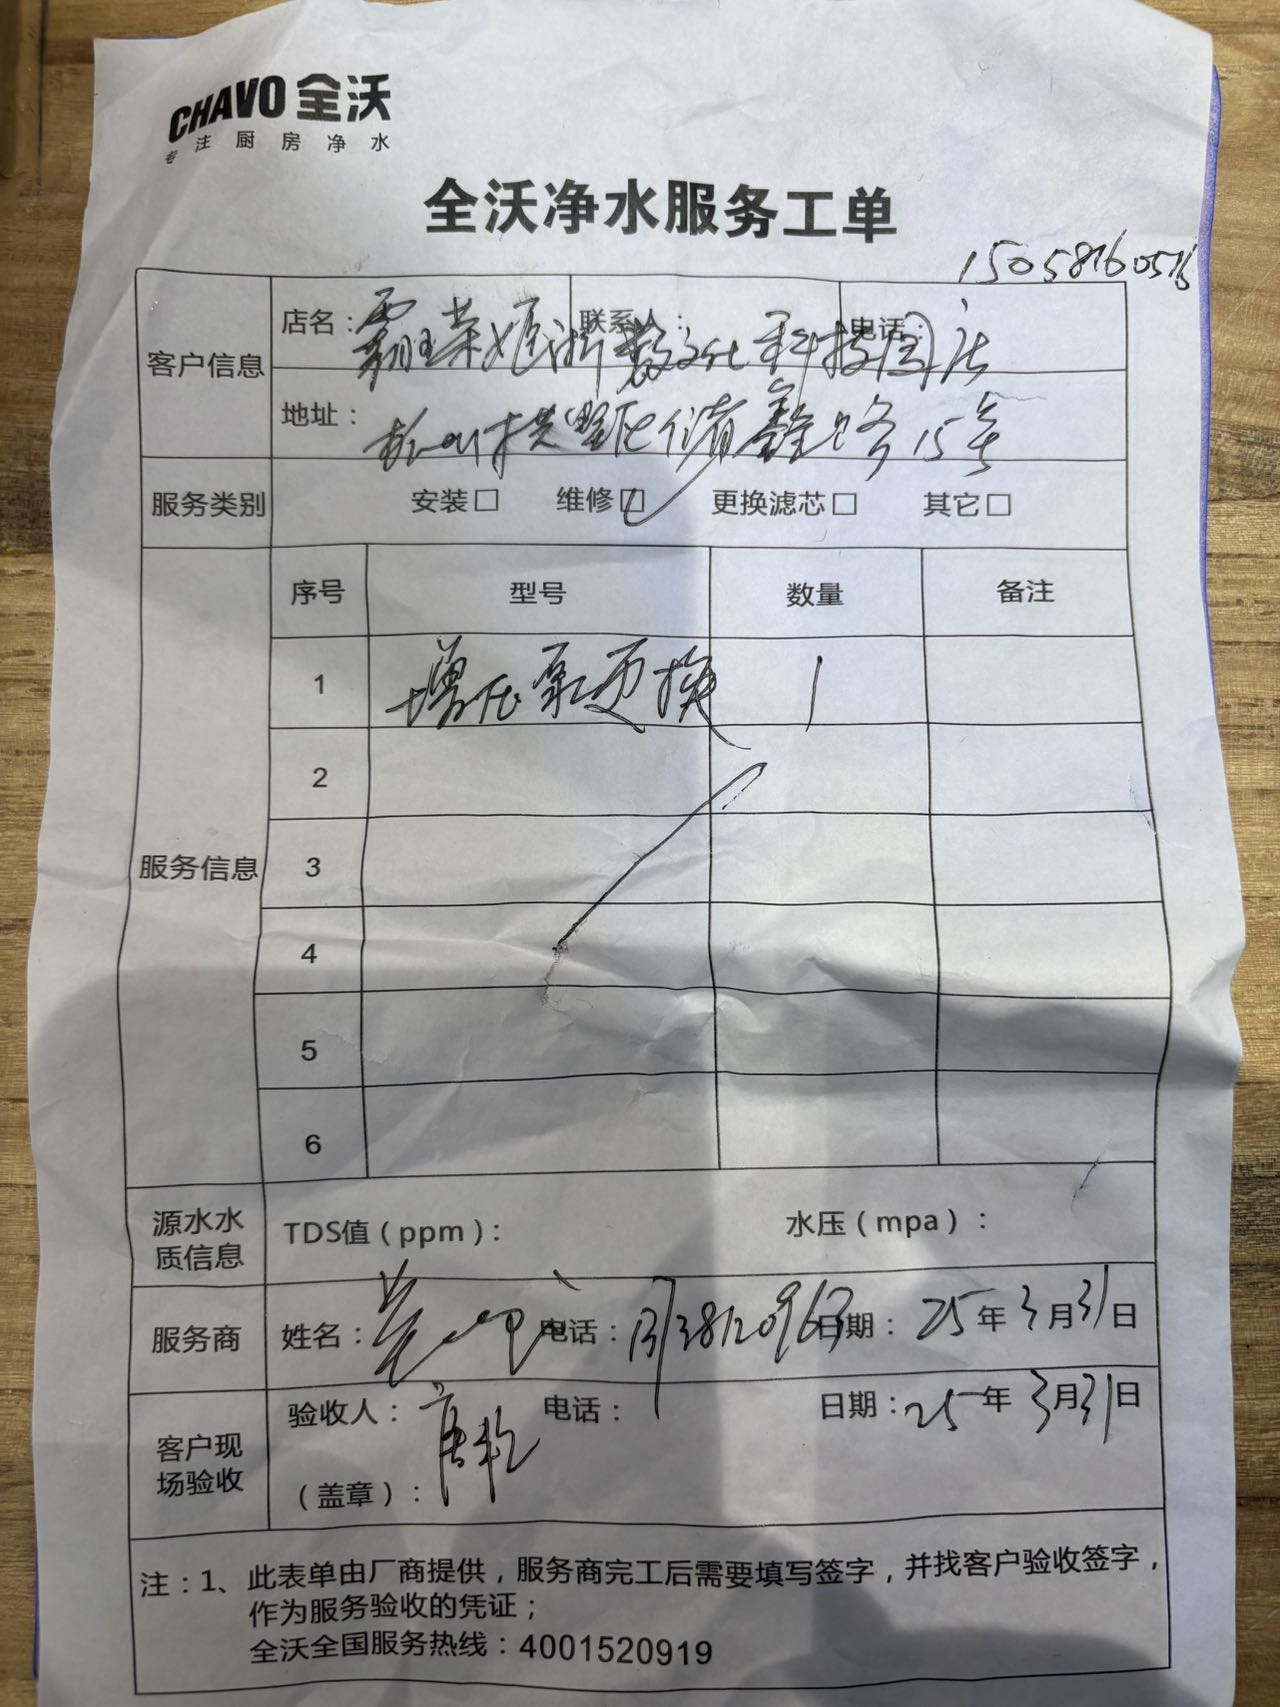 CHAVO 全沃
专注厨房净水
全沃净水服务工单
15058160516
客户信息
店名：霸王茶姬浙数文化科技园店
联系人：
电话：
地址：杭州拱墅区储鑫路15号
服务类别
安装□ 维修☑ 更换滤芯□ 其它□
服务信息
序号 型号 数量 备注
1 增压泵更换 1
2
3
4
5
6
源水水质信息
TDS值（ppm）： 水压（mpa）：
服务商
姓名： 电话：13738120963 日期：25年3月31日
客户现场验收
验收人：唐乾 电话： 日期：25年3月31日
（盖章）：
注：1、此表单由厂商提供，服务商完工后需要填写签字，并找客户验收签字，
作为服务验收的凭证；
全沃全国服务热线：4001520919